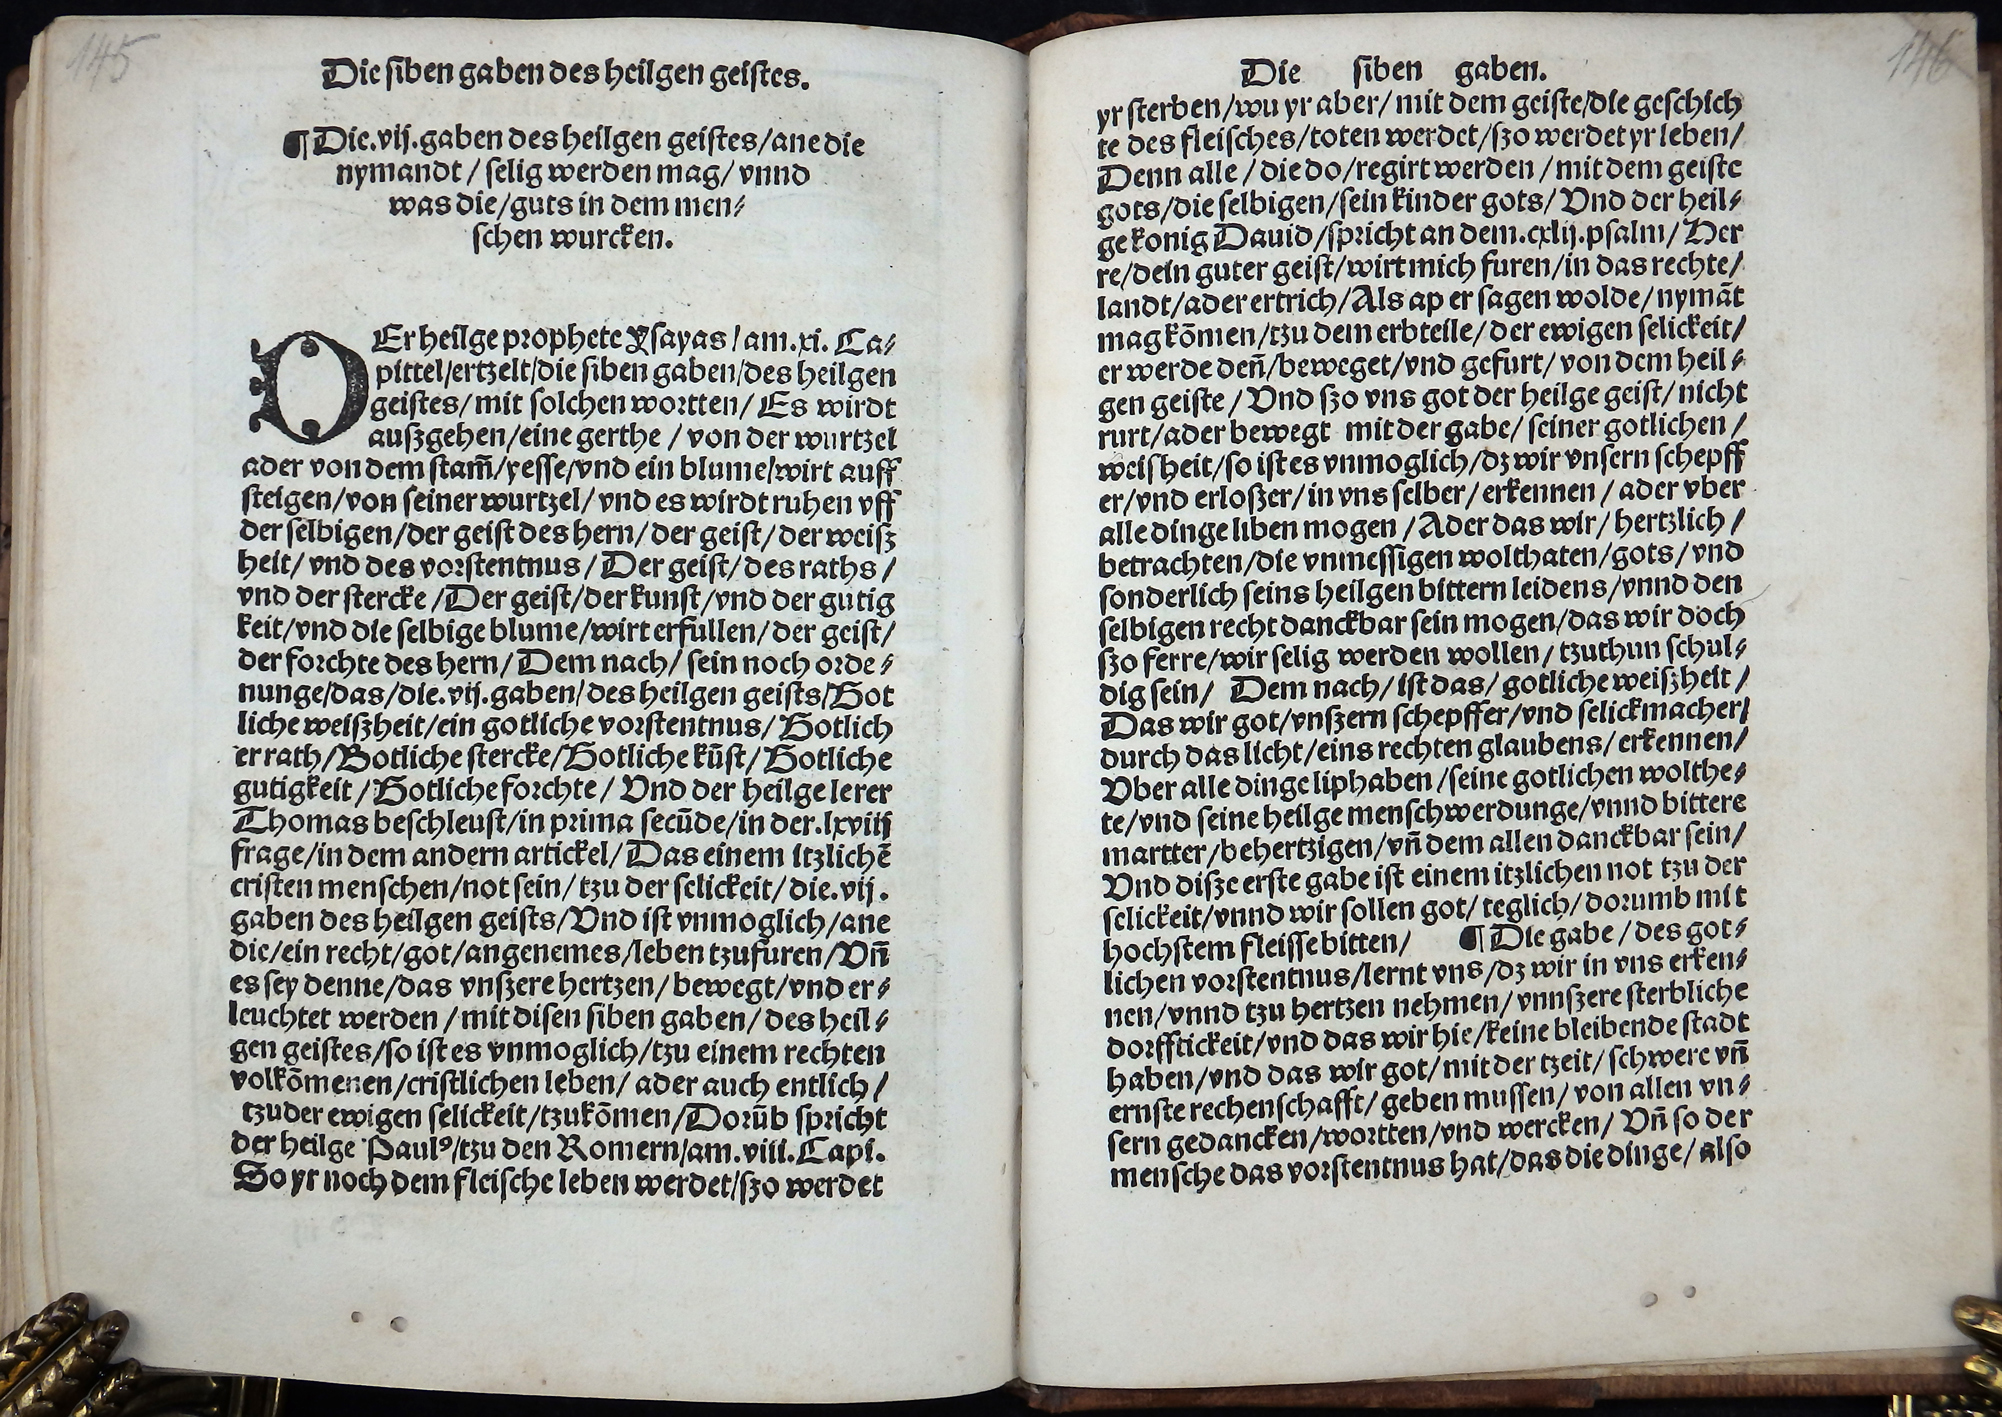 145
Die siben gaben des heilgen geistes.
¶ Die.vij.gaben des heilgen geistes/ane die
nymandt / selig werden mag/ vnnd
was die/guts in dem men⸗
schen wurcken.
DEr heilge prophete Ysayas/am.xi. Ca⸗
pittel/ertzelt/die siben gaben/des heilgen
geistes/mit solchen wortten/ Es wirdt
außgehen/eine gerthe / von der wurtzel
ader von dem stam̄/yesse/vnd ein blume/wirt auff
steigen/von seiner wurtzel/ vnd es wirdt ruhen vff
der selbigen/der geist des hern/ der geist/ der weisz
heit/ vnd des vorstentnus / Der geist/ des raths /
vnd der stercke /Der geist/der kunst/vnd der gutig
keit/vnd die selbige blume/wirt erfullen/ der geist/
der forchte des hern/ Dem nach/ sein noch orde⸗
nunge/das/die.vij.gaben/des heilgen geists/Got
liche weißheit/ein gotliche vorstentnus/ Gotlich
er rath/Gotliche stercke/Gotliche kūst/ Gotliche
gutigkeit / Gotliche forchte / Vnd der heilge lerer
Thomas beschleust/in prima secūde/in der.lxviij
frage/in dem andern artickel/ Das einem itzlichē
cristen menschen/not sein/ tzu der selickeit/die.vij.
gaben des heilgen geists/Vnd ist vnmoglich/ane
die/ein recht/got/angenemes/leben tzufuren/Vn̄
es sey denne/das vnszere hertzen/ bewegt/vnd er⸗
leuchtet werden / mit disen siben gaben/ des heil⸗
gen geistes/so ist es vnmoglich/tzu einem rechten
volkōmenen/cristlichen leben/ ader auch entlich/
tzuder ewigen selickeit/tzukōmen/Dorūb spricht
der heilge Paulꝰ/tzu den Romern/am.viii.Capi.
So yr noch dem fleische leben werdet/szo werdet
146
Die siben gaben.
yr sterben/wu yr aber/ mit dem geiste/die geschich
te des fleisches/toten werdet/szo werdet yr leben/
Denn alle / die do/regirt werden / mit dem geiste
gots/die selbigen/sein kinder gots/ Vnd der heil⸗
ge konig Dauid/spricht an dem.cxlij.psalm/ Her
re/dein guter geist/wirt mich furen/in das rechte/
landt/ader ertrich/Als ap er sagen wolde/nymāt
mag kōmen/tzu dem erbteile/der ewigen selickeit/
er werde den̄/beweget/vnd gefurt/ von dem heil⸗
gen geiste / Vnd szo vns got der heilge geist/ nicht
rurt/ader bewegt mit der gabe/ seiner gotlichen /
weisheit/so ist es vnmoglich/dz wir vnsern schepff
er/vnd erloszer/in vns selber/ erkennen / ader vber
alle dinge liben mogen /Ader das wir/ hertzlich /
betrachten/die vnmessigen wolthaten/gots/ vnd
sonderlich seins heilgen bittern leidens/vnnd den
selbigen recht danckbar sein mogen/das wir doch
szo ferre/wir selig werden wollen / tzuthun schul⸗
dig sein/ Dem nach/ ist das/ gotliche weißheit /
Das wir got/vnszern schepffer/vnd selickmacher/
durch das licht/eins rechten glaubens/ erkennen/
Vber alle dinge liphaben /seine gotlichen wolthe⸗
te/vnd seine heilge menschwerdunge/vnnd bittere
martter/behertzigen/vn̄ dem allen danckbar sein/
Vnd disze erste gabe ist einem itzlichen not tzu der
selickeit/vnnd wir sollen got/ teglich/ dorumb mit
hochstem fleisse bitten/ ¶ Die gabe / des got⸗
lichen vorstentnus/lernt vns/dz wir in vns erken⸗
nen/vnnd tzu hertzen nehmen/ vnnszere sterbliche
dorfftickeit/vnd das wir hie/keine bleibende stadt
haben/vnd das wir got/mit der tzeit/ schwere vn̄
ernste rechenschafft/ geben mussen/ von allen vn⸗
sern gedancken/wortten/vnd wercken/ Vn̄ so der
mensche das vorstentnus hat/das die dinge/ also